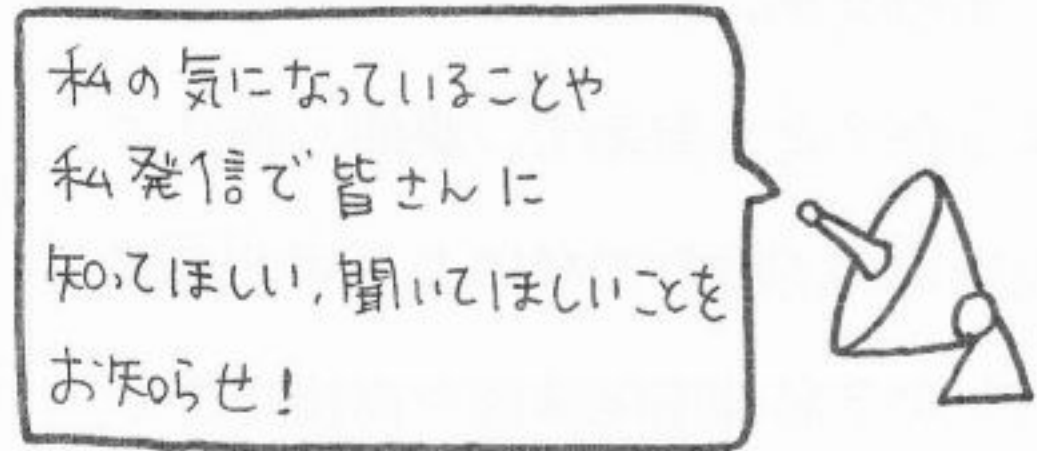 私の気になっていることや
私発信で皆さんに
知ってほしい,聞いてほしいことを
お知らせ!